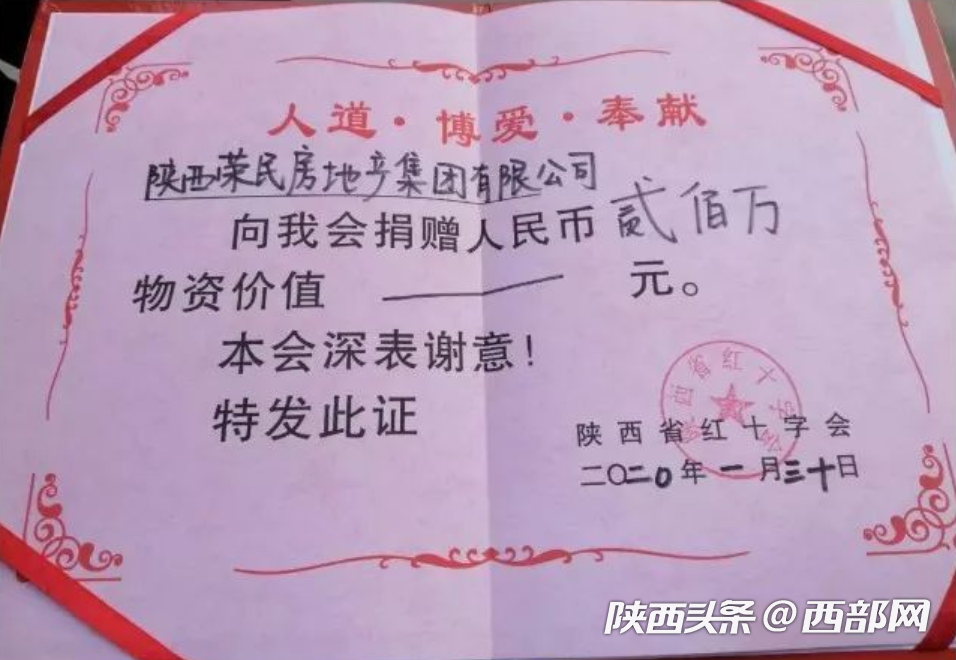 人道·博爱·奉献
陕西荣民房地产集团有限公司
向我会捐赠人民币贰佰万
物资价值 —— 元。
本会深表谢意!
特发此证
陕西省红十字会
陕西省红十字会
二〇二〇年一月三十日
陕西头条@西部网